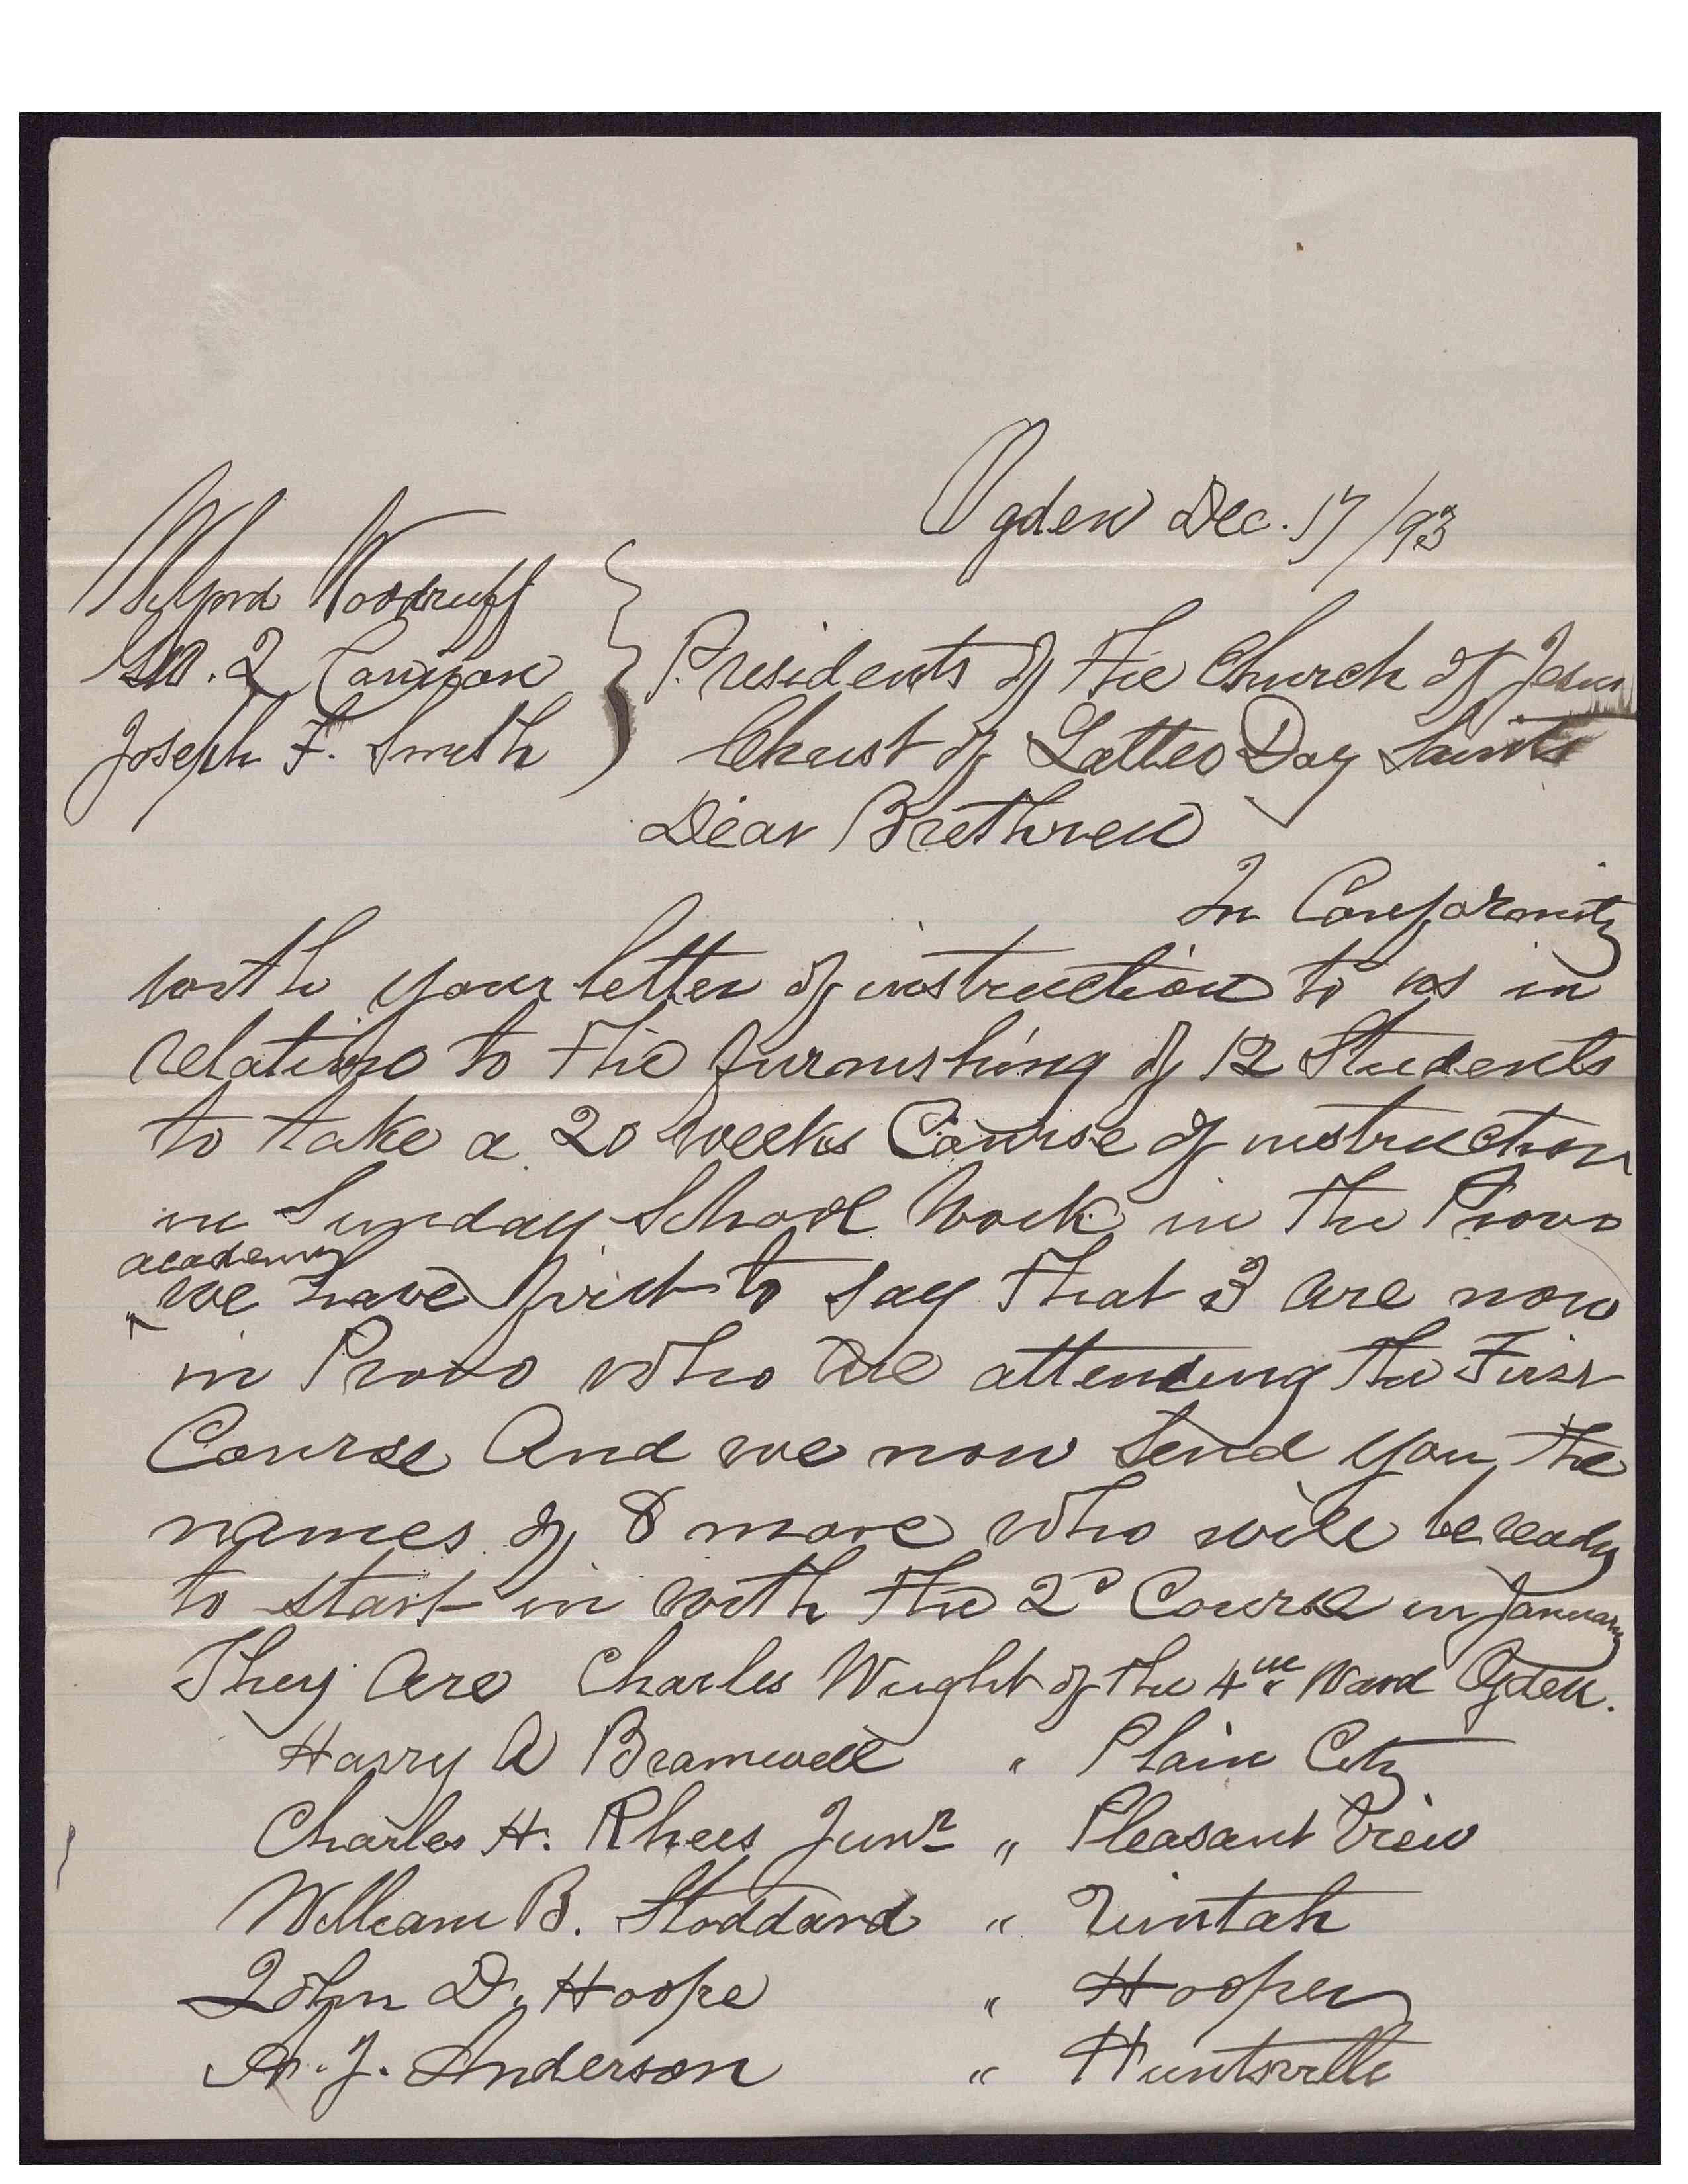 Ogden Dec. 17/93
Wilford Woodruff
Geo. Q Cannon
Joseph F. Smith
Presidents of the Church of Jesus
Christ of Latter Day Saints
Dear Brethren
In Conformity
with your letter of instruction to us in
relation to the furnishing of 12 Students
to take a 20 weeks Course of instruction
in Sunday School Work in the Provo
academy
we have first to say that 3 are now
in Provo who are attending the First
Course And we now send you the
names of 8 more who will be ready
to start in with the 2d Course in January
They are Charles Wright of the 4th Ward Ogden.
Harry A Bramwell " Plain City
Charles H. Rhees Junr " Pleasant View
William B. Stoddard " Uintah
John D. Hoope " Hooper
A. J. Anderson " Huntsville